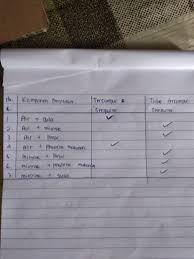 No Komponen Percobaan Tercampur Sempurna Tidak tercampur Sempurna
1 Air + gula ✓
2. Air + minyak ✓
3. Air + ✓
4 Air + pewarna makanan ✓
5 minyak + ✓
6. minyak + pewarna makanan ✓
7 minyak + gula ✓